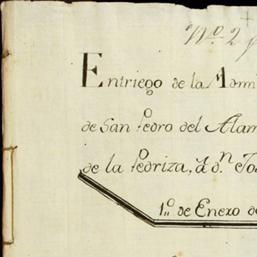 Nº 2
Entriego de la Admi
de San Pedro del Alam
de la Pedriza, á d.ⁿ Jo
1.º de Enero de